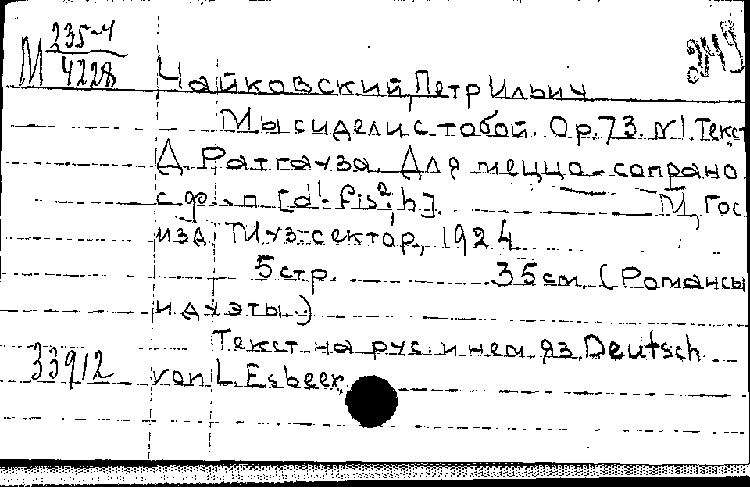 М 235-4
4228
249
Чайковский, Петр Ильич
Мы сидели с тобой. Op. 73. N1. Текст
Д. Ратгауза. Для меццо-сопрано
с ф.-п [d¹-fis²; h]. М, Гос
изд, Муз-сектор, 1924
5 стр. 35 см. (Романсы
и дуэты.)
Текст на рус. и нем яз. Deutsch
33912 von L. Esbeer.